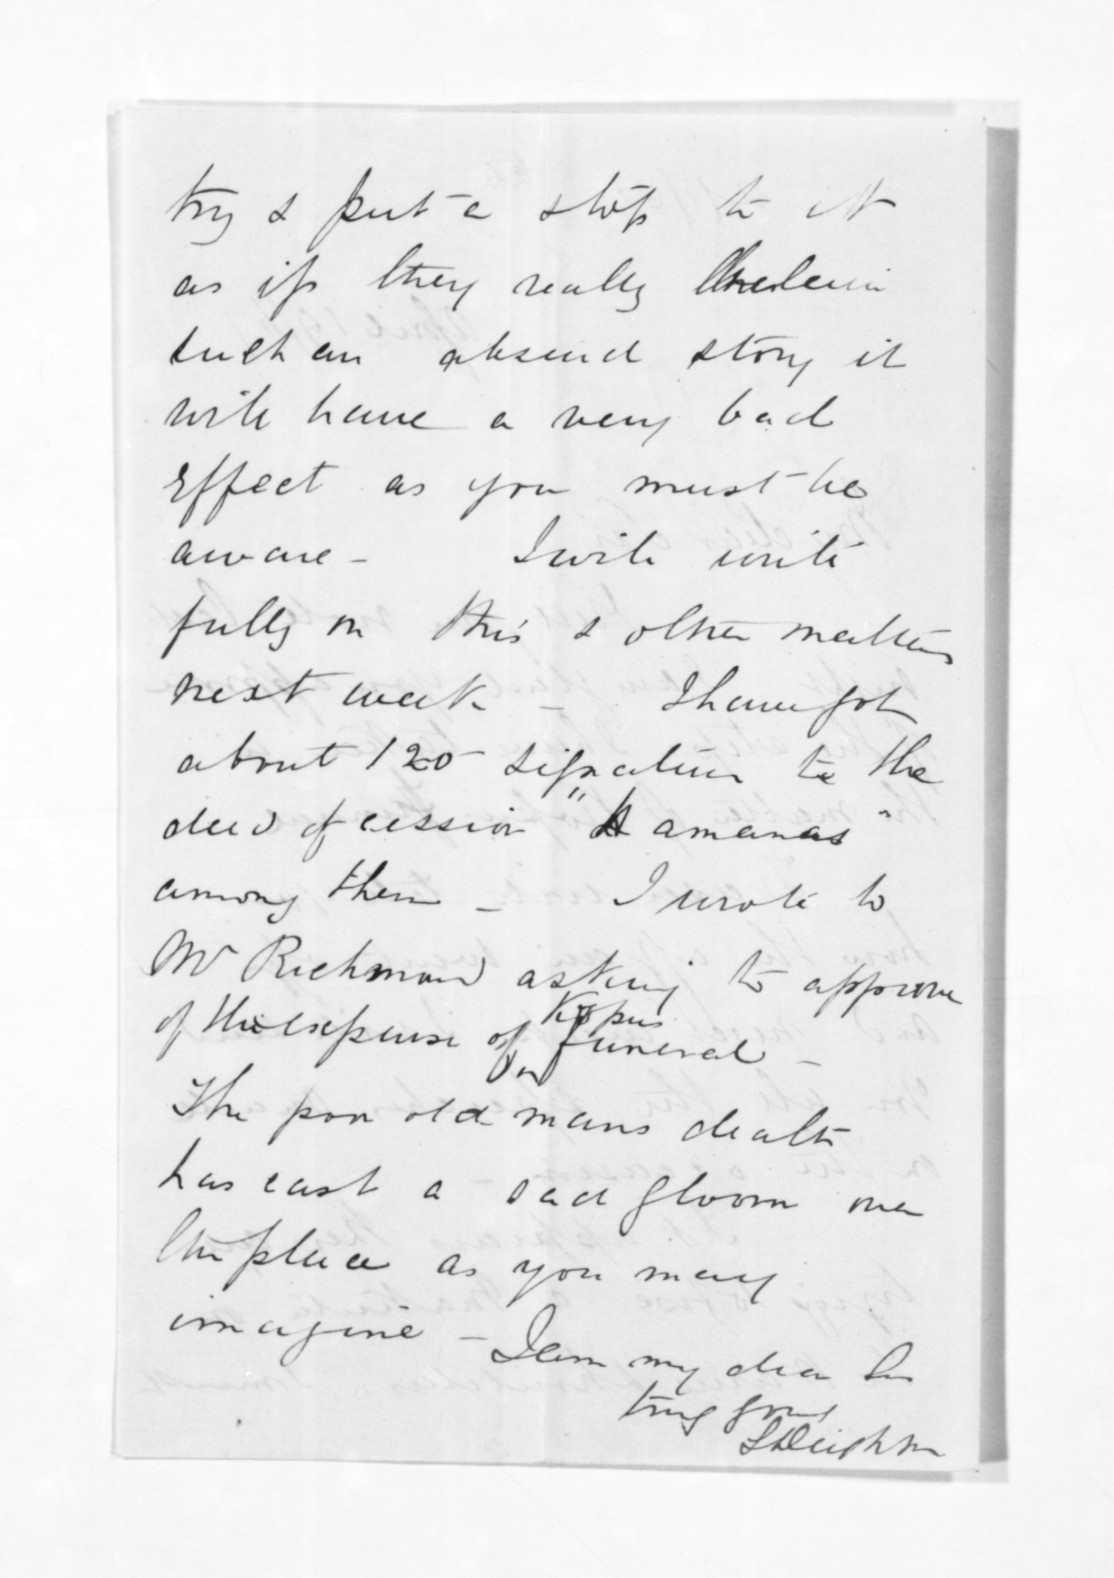 try & put a stop to it
as if they really believe
such an absurd story it
will have a very bad
effect as you must be
aware - I will write
fully on this & other matters
next week - I have got
about 120 signatures to the
deed of cession "Kamanas"
among them - I wrote to
Mr Richmond asking to approve
of the expense of Kopus funeral -
The poor old mans death
has cast a sad gloom over
the place as you may
imagine - I am my dear Sir
truly yours
S Deighton